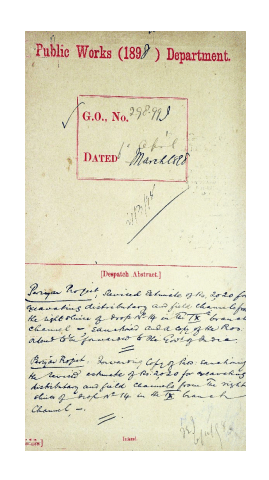 Public Works (1898) Department.
G.O., No. 398-99
DATED March 1898
[Despatch Abstract.]
Periyar Project, Revised Estimate of Rs. 2020 for
excavating distributary and field channels from
the right sluice of drop No 14 in the IX branch
channel -, sanctioned and a copy of the
to be forwarded to the Govt of India.
Periyar Project. Forwards Copy of sanctioning
the revised estimate of Rs. 2020 for excavating
distributary and field channels from the right
sluice of drop No 14. in the IX branch
Channel -.